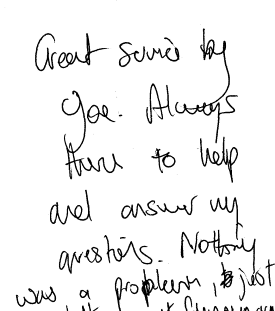 Great service by
Joe. Always
there to help
and answer my
questions. Nothing
was a problem, just